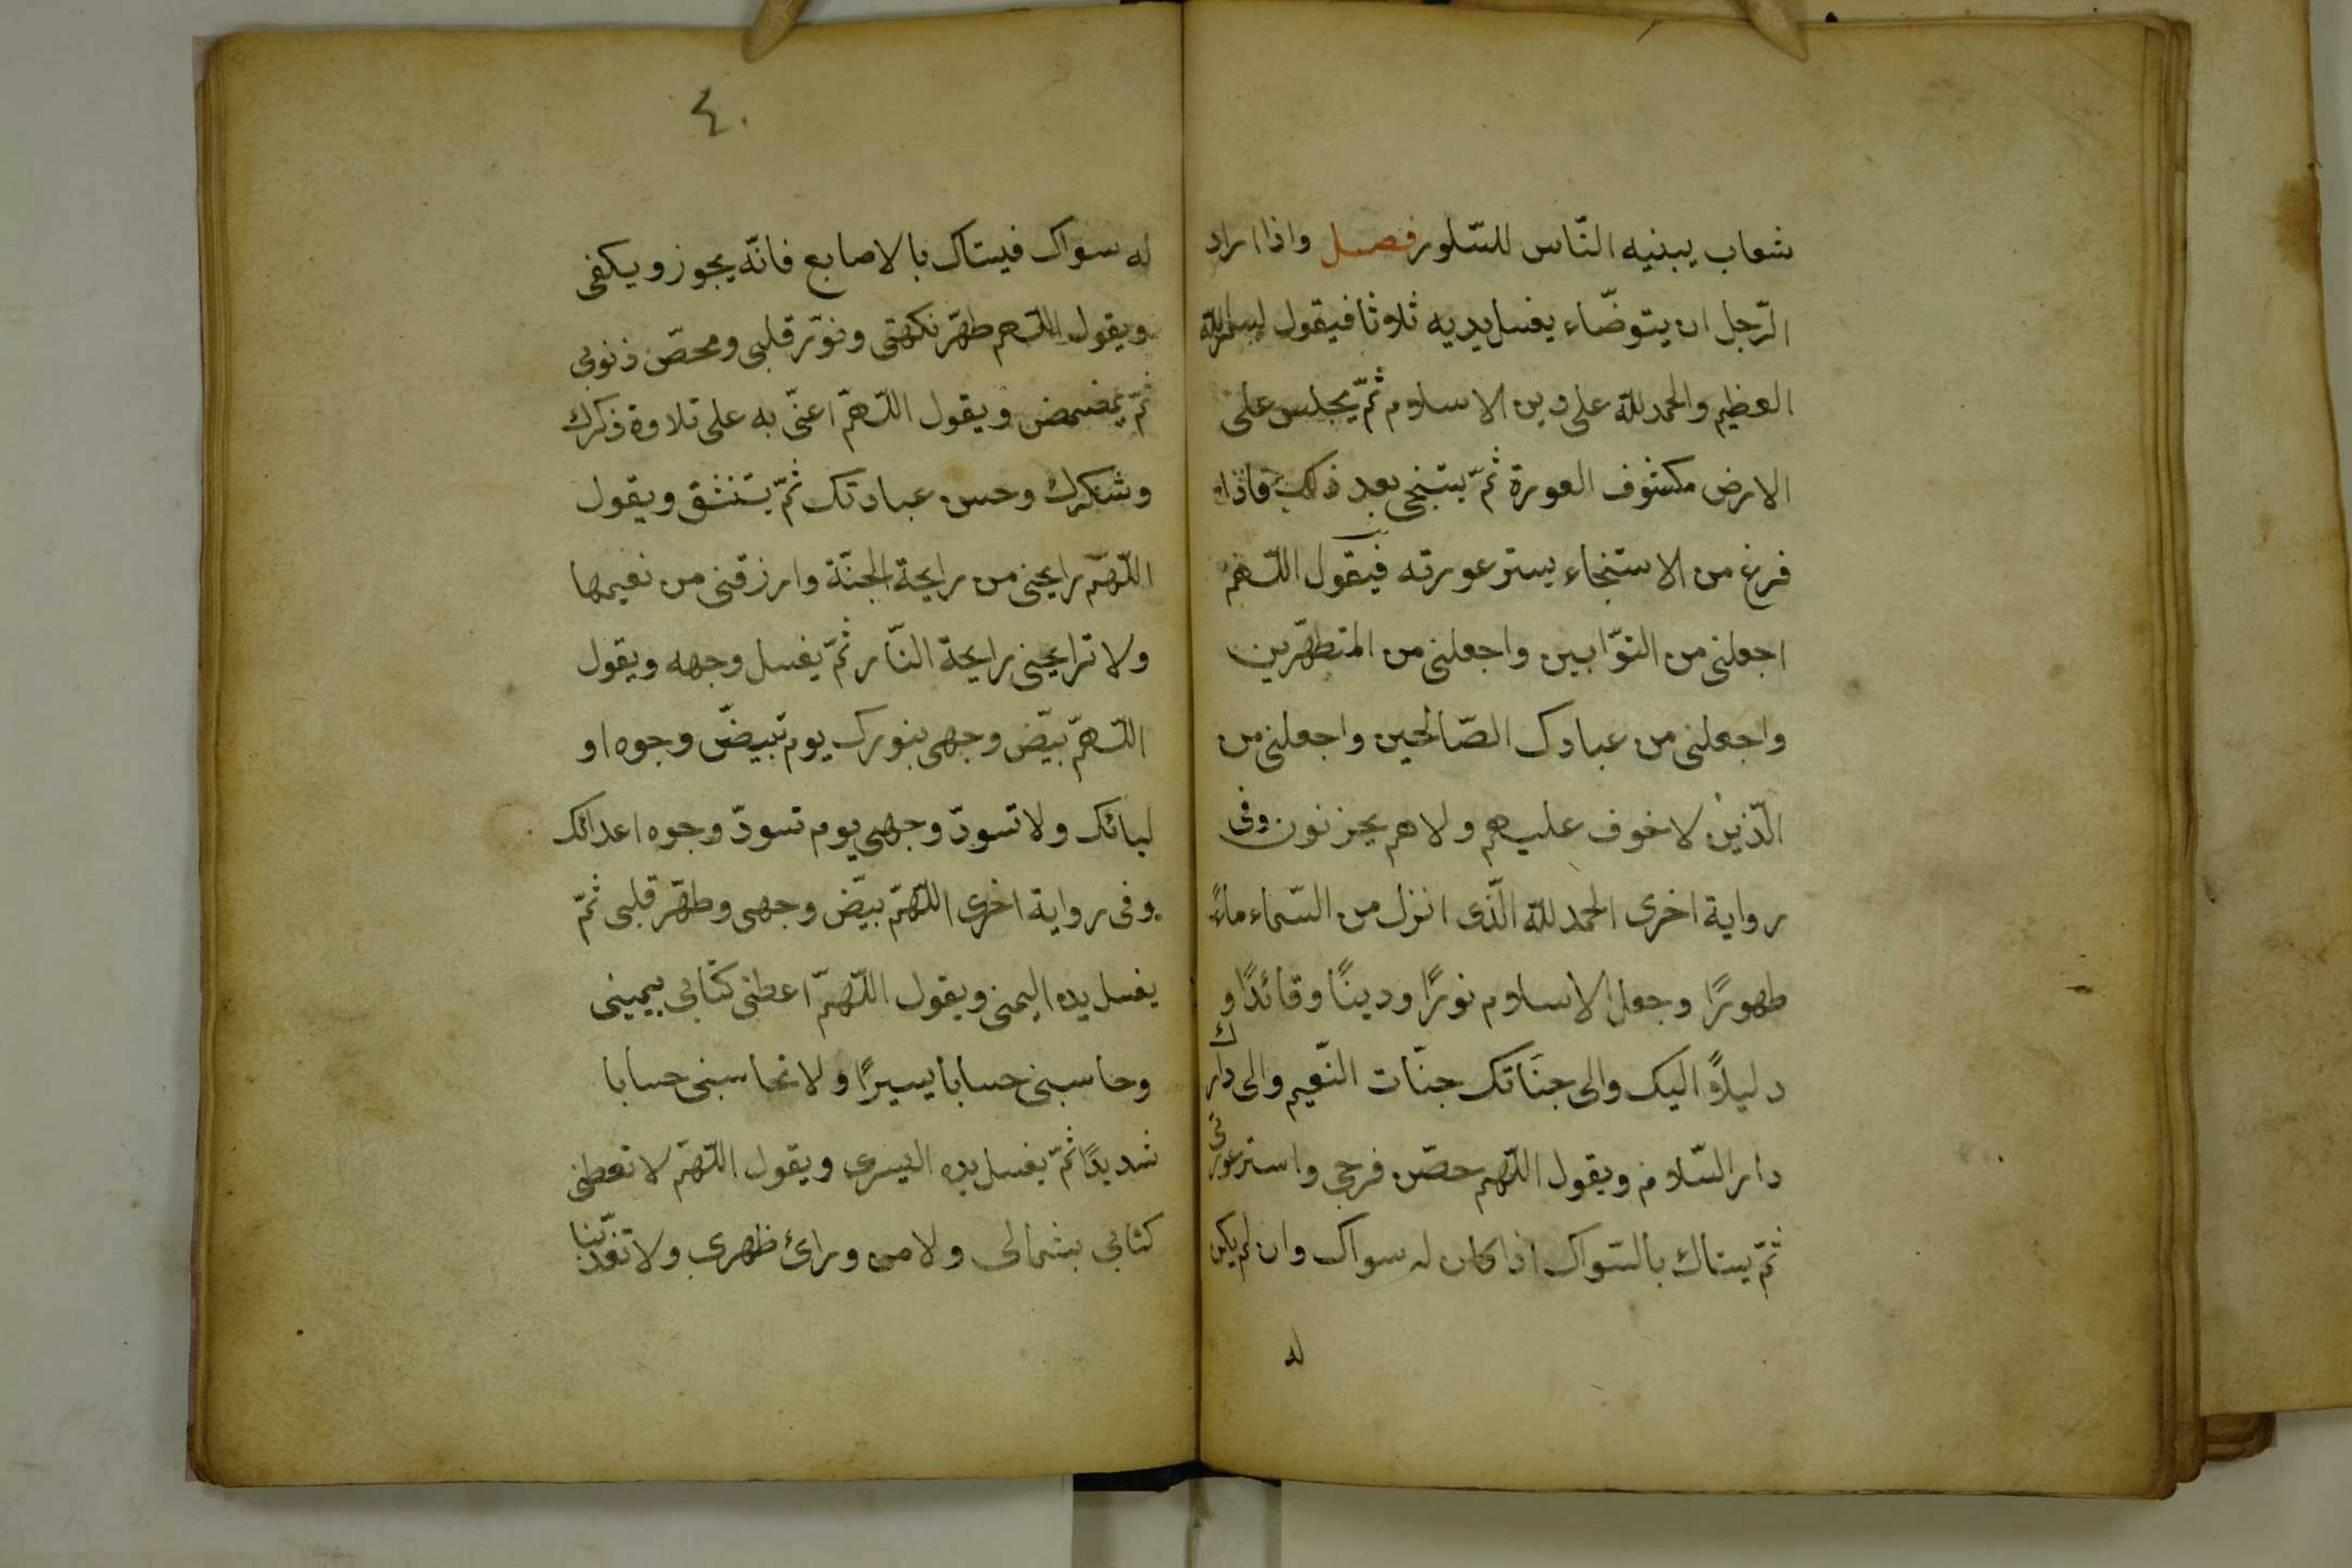 شعاب يبنيه النّاس للسّلور فصل واذا اراد
الرّجل ان يتوضّاء يغسل يديه ثلاوثا فيقول بسم الله
العظيم والحمد لله على دين الاسلام ثمّ يجلس على
الارض مكشوف العورة ثمّ يستنجى بعد ذلك فاذا
فرغ من الاستنجاء يستر عورته فيقول اللّهمّ
اجعلنى من التوّابين واجعلنى من المتطهّرين
واجعلنى من عبادك الصّالحين واجعلنى من
الّذين لا خوف عليهم ولا هم يحزنون وفى
رواية اخرى الحمد لله الّذى انزل من السّماء ماءً
طهورًا وجعل الاسلام نورًا ودينًا وقائدًا و
دليلاً اليك والى جنّاتك جنّات النّعيم والى دارك
دار السّلام ويقول اللّهم حصّن فرجى واستر عورتى
ثمّ يستاك بالسّواك اذا كان له سواك وان لم يكن
له
٤٠
له سواك فيستاك بالاصابع فانّه يجوز ويكفى
ويقول اللّهم طهّر نكهتى ونوّر قلبى ومحصّ ذنوبى
ثمّ يمضمض ويقول اللّهمّ اعنّى به على تلاوة ذكرك
وشكرك وحسن عبادتك ثمّ يستنشق ويقول
اللّهمّ رايحنى من رايحة الجنّة وارزقنى من نعيمها
ولا ترايحنى رايحة النّار ثمّ يغسل وجهه ويقول
اللّهمّ بيّض وجهى بنورك يوم تبيضّ وجوه او
ليائك ولا تسودّ وجهى يوم تسودّ وجوه اعدائك
وفى رواية اخرى اللّهمّ بيّض وجهى وطهّر قلبى ثمّ
يغسل يده اليمنى ويقول اللّهمّ اعطنى كتابى بيمينى
وحاسبنى حسابا يسيرًا ولا تحاسبنى حسابا
شديدًا ثمّ يغسل يده اليسرى ويقول اللّهمّ لا تعطنى
كتابى بشمالى ولا من ورائ ظهرى ولا تعذّبنا